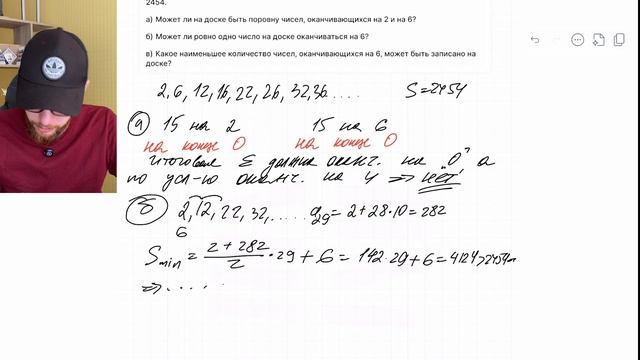 2454.
а) Может ли на доске быть поровну чисел, оканчивающихся на 2 и на 6?
б) Может ли ровно одно число на доске оканчиваться на 6?
в) Какое наименьшее количество чисел, оканчивающихся на 6, может быть записано на
доске?
2, 6, 12, 16, 22, 26, 32, 36..... S=2454
а) 15 на 2 15 на 6
на конце 0 на конце 0
итоговая Σ должна оканч. на "0", а
по усл-ю оканч. на 4 => нет!
б) 2, 12, 22, 32, ..... a29 = 2+28·10=282
6
Smin = 2+282/2 · 29 + 6 = 142·29+6=4124>2454
=> .....